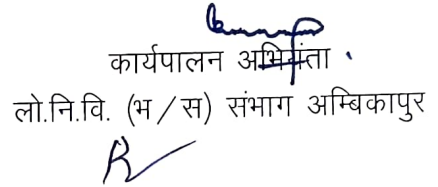 कार्यपालन अभियंता
लो.नि.वि. (भ/स) संभाग अम्बिकापुर